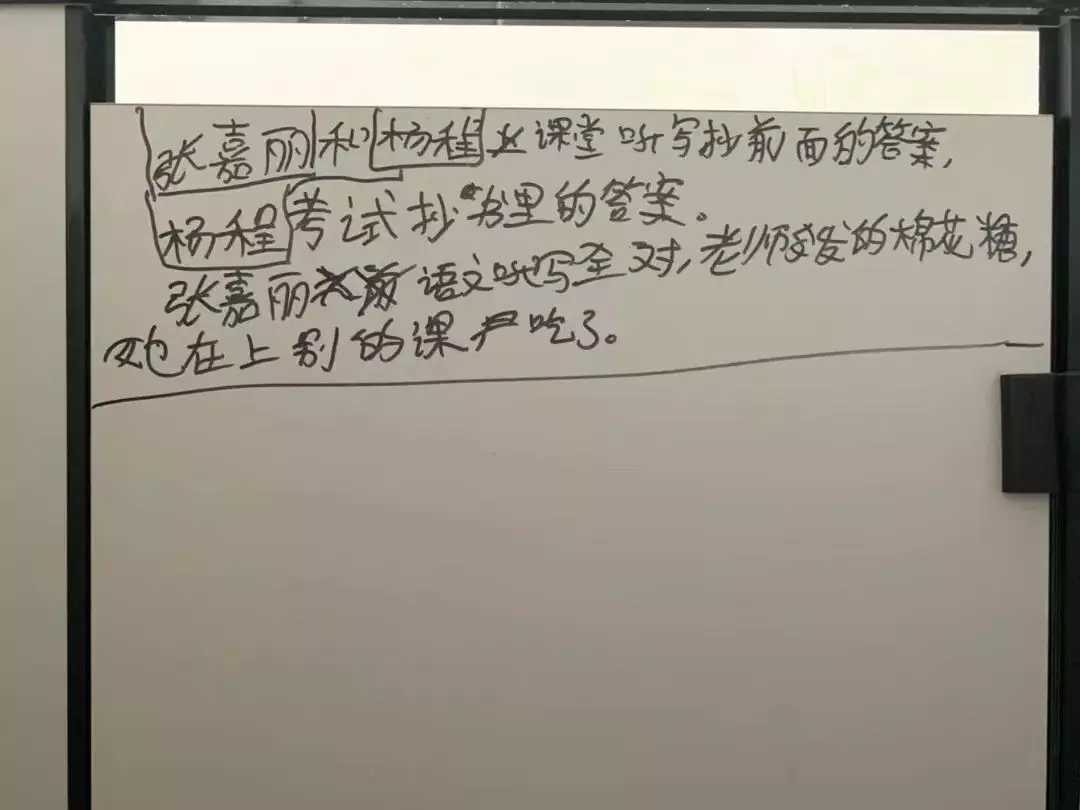 张嘉丽和杨程上课堂听写抄前面的答案,
杨程考试抄书里的答案。
张嘉丽语文听写全对,老师发的棉花糖,
她在上别的课吃了。